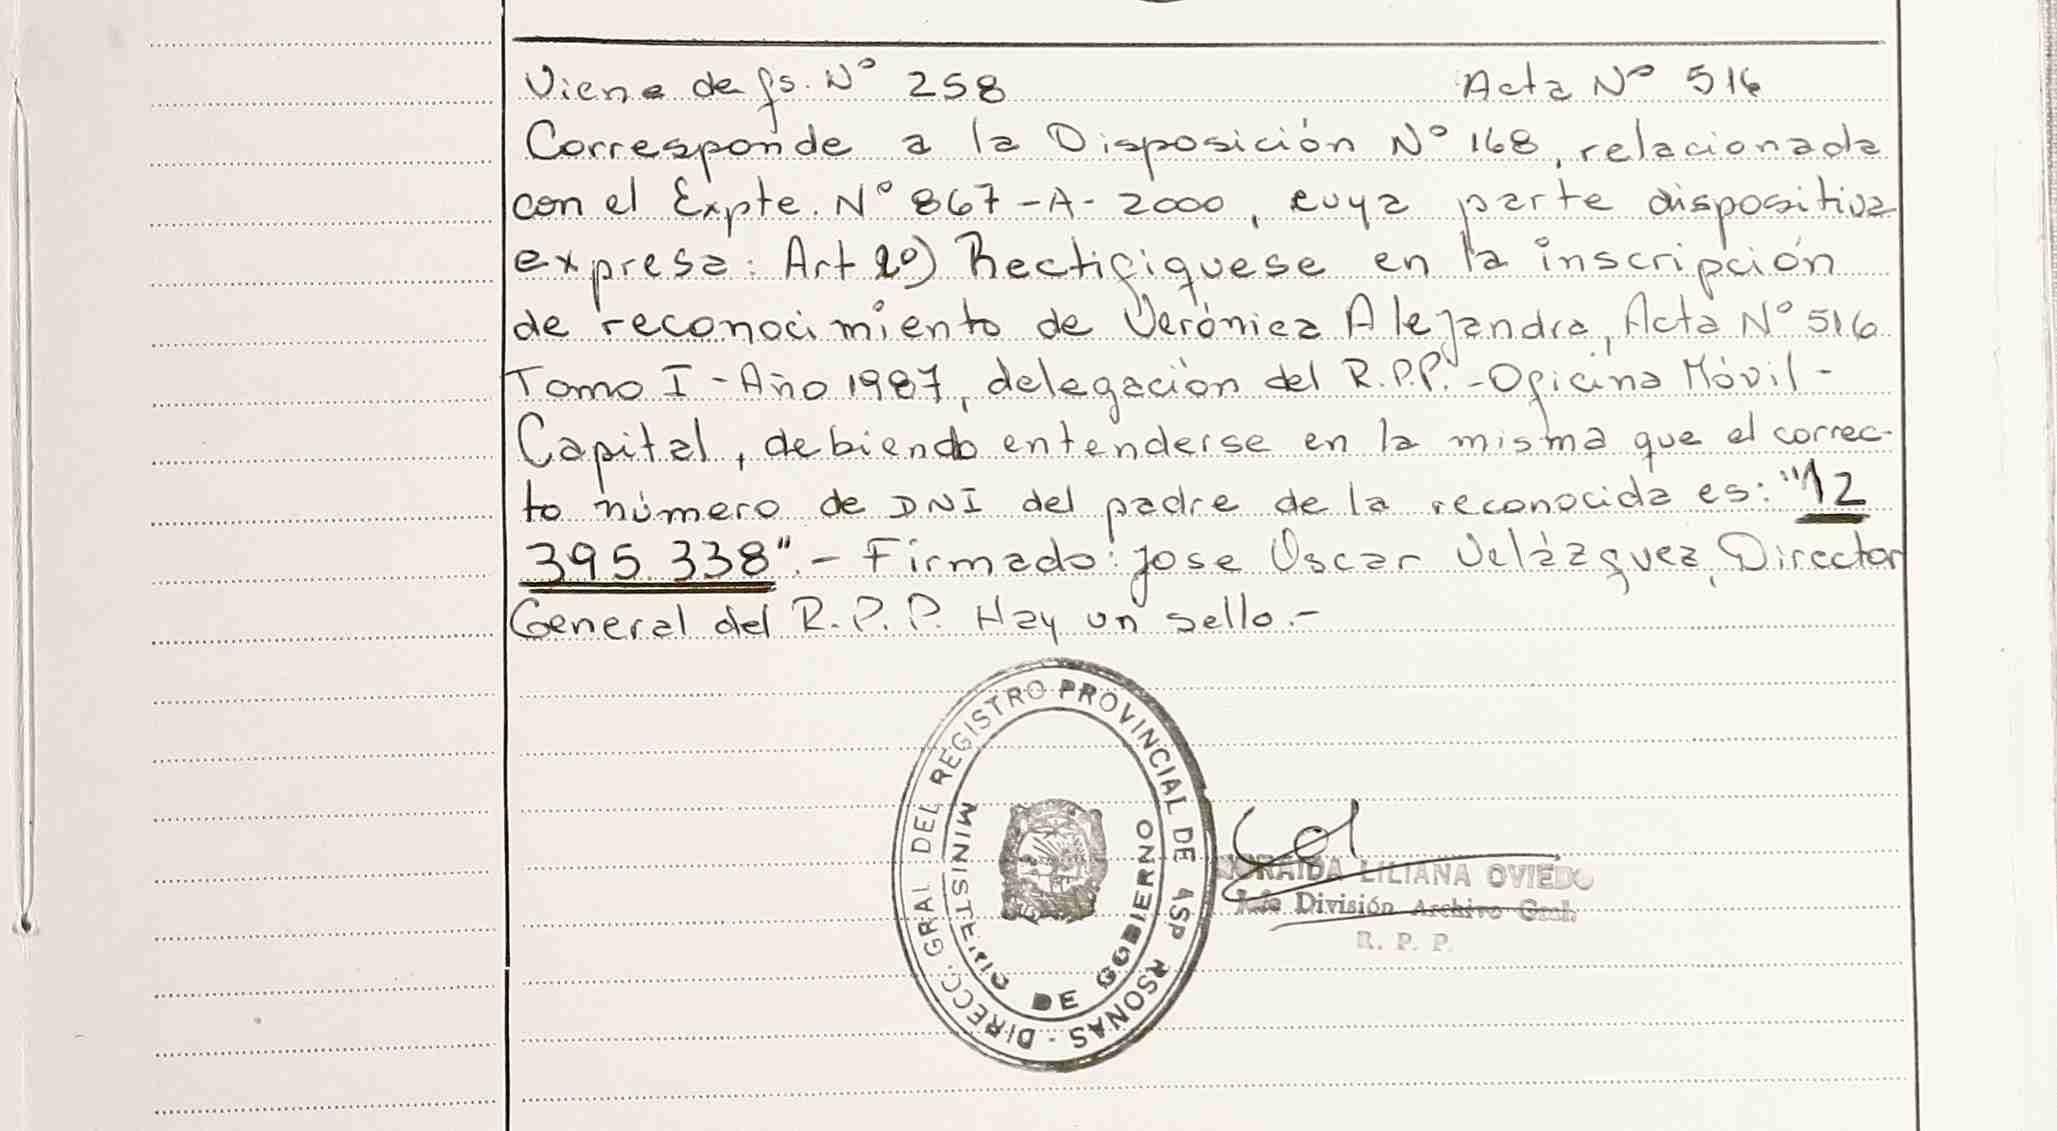 Viene de fs. Nº 258 Acta Nº 516
Corresponde a la Disposición Nº 168, relacionada
con el Expte. Nº 867-A-2000, cuya parte dispositiva
expresa: Art 1º) Rectifiquese en la inscripción
de reconocimiento de Verónica Alejandra, Acta Nº 516
Tomo I - Año 1987, delegación del R.P.P. - Oficina Móvil -
Capital, debiendo entenderse en la misma que el correc-
to número de DNI del padre de la reconocida es: "12
395 338".- Firmado: Jose Oscar Velázquez, Director
General del R.P.P. Hay un sello.-
DIRECC. GRAL DEL REGISTRO PROVINCIAL DE PERSONAS -
MINISTERIO DE GOBIERNO
LILIANA OVIEDO
Jefe División Archivo Gral.
R. P. P.